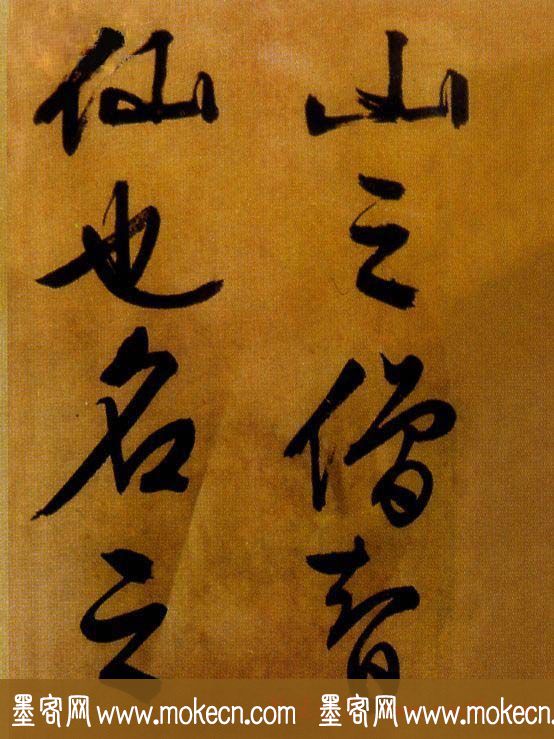 山之僧智
仙也名之
墨客网 www.mokecn.com 墨客网 www.mokecn.com